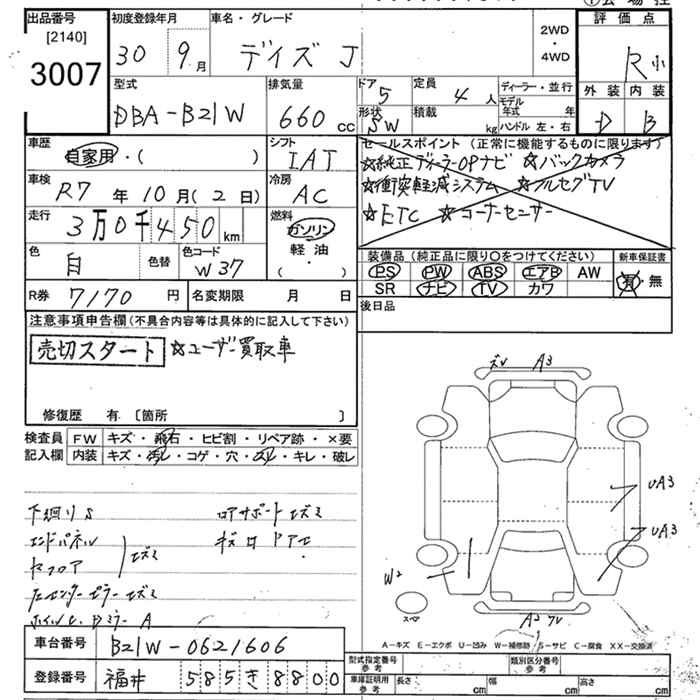 出品番号
[2140]
3007
初度登録年月
30 9月
車名・グレード
デイズ J
2WD
・
4WD
評価点
R小
外装 内装
D B
型式
DBA-B21W
排気量
660 cc
ドア
5
形状
SW
定員
4人
積載
kg
ディーラー・並行
モデル年式 年
ハンドル 左・右
車歴
自家用・( )
シフト
IAT
車検
R7年10月(2日)
冷房
AC
走行
3万0千450km
燃料
ガソリン
軽・油
・( )
色
白
色替
色コード
W37
R券 7170円
名変期限 月 日
セールスポイント (正常に機能するものに限ります)
☆純正ディーラーOPナビ ☆バックカメラ
☆衝突軽減システム ☆フルセグTV
☆ETC ☆コーナーセンサー
装備品(純正品に限り○をつけてください)
PS PW ABS エアB AW
SR ナビ TV カワ
新車保証書
有・無
後日品
注意事項申告欄(不具合内容等は具体的に記入して下さい)
売切スタート ☆ユーザー買取車
修復歴 有 〔箇所 〕
検査員記入欄
FW キズ・飛石・ヒビ割・リペア跡・×要
内装 キズ・汚レ・コゲ・穴・スレ・キレ・破レ
下廻りS
ロアサポートエズミ
エンドパネル
キズ ロ ドアセ
セフロア
エズミ
センターピラーエズミ
ホイルC、Dミラー A
A3
UA3
UA3
W2
スペア
A2
A-キズ E-エクボ U-凹み W-補修跡 S-サビ C-腐食 XX-交換済
車台番号 B21W-0621606
登録番号 福井 585き8800
型式指定番号
参考
類別区分番号
参考
車庫証明用
参考
長さ cm
幅 cm
高さ cm